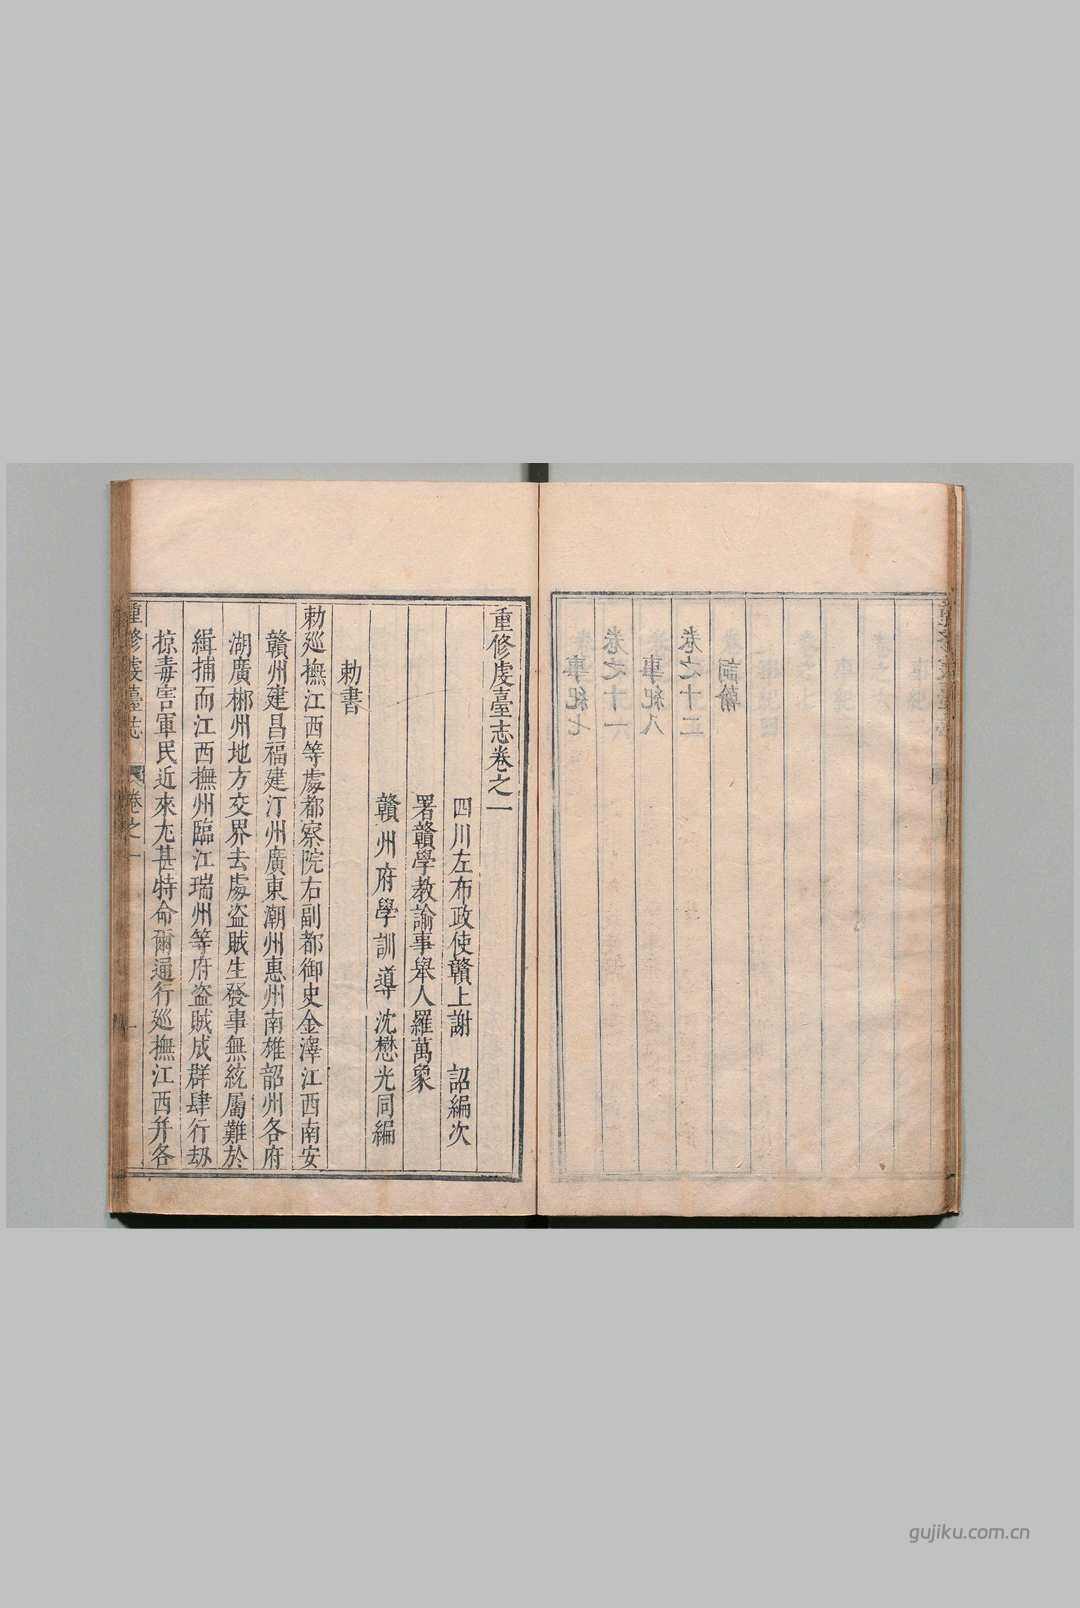 事紀七
卷之十一
事紀八
卷之十二
詞翰
重修虔臺志卷之一
四川左布政使贛上謝　詔編次
署贛學教諭事舉人羅萬象
贛州府學訓導沈懋光同編
勅書
勅廵撫江西等處都察院右副都御史金澤江西南安
贛州建昌福建汀州廣東潮州惠州南雄韶州各府
湖廣郴州地方交界去處盗賊生發事無統屬難於
緝捕而江西撫州臨江瑞州等府盗賊成群肆行刼
掠毒害軍民近來尤甚特命爾通行廵撫江西并各
重修虔臺志
卷之一
一
gujiku.com.cn